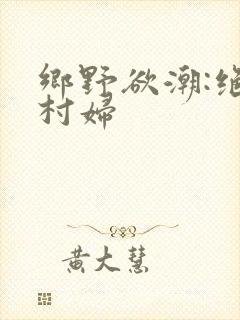 鄉野欲潮:絕
村婦
黃大慧